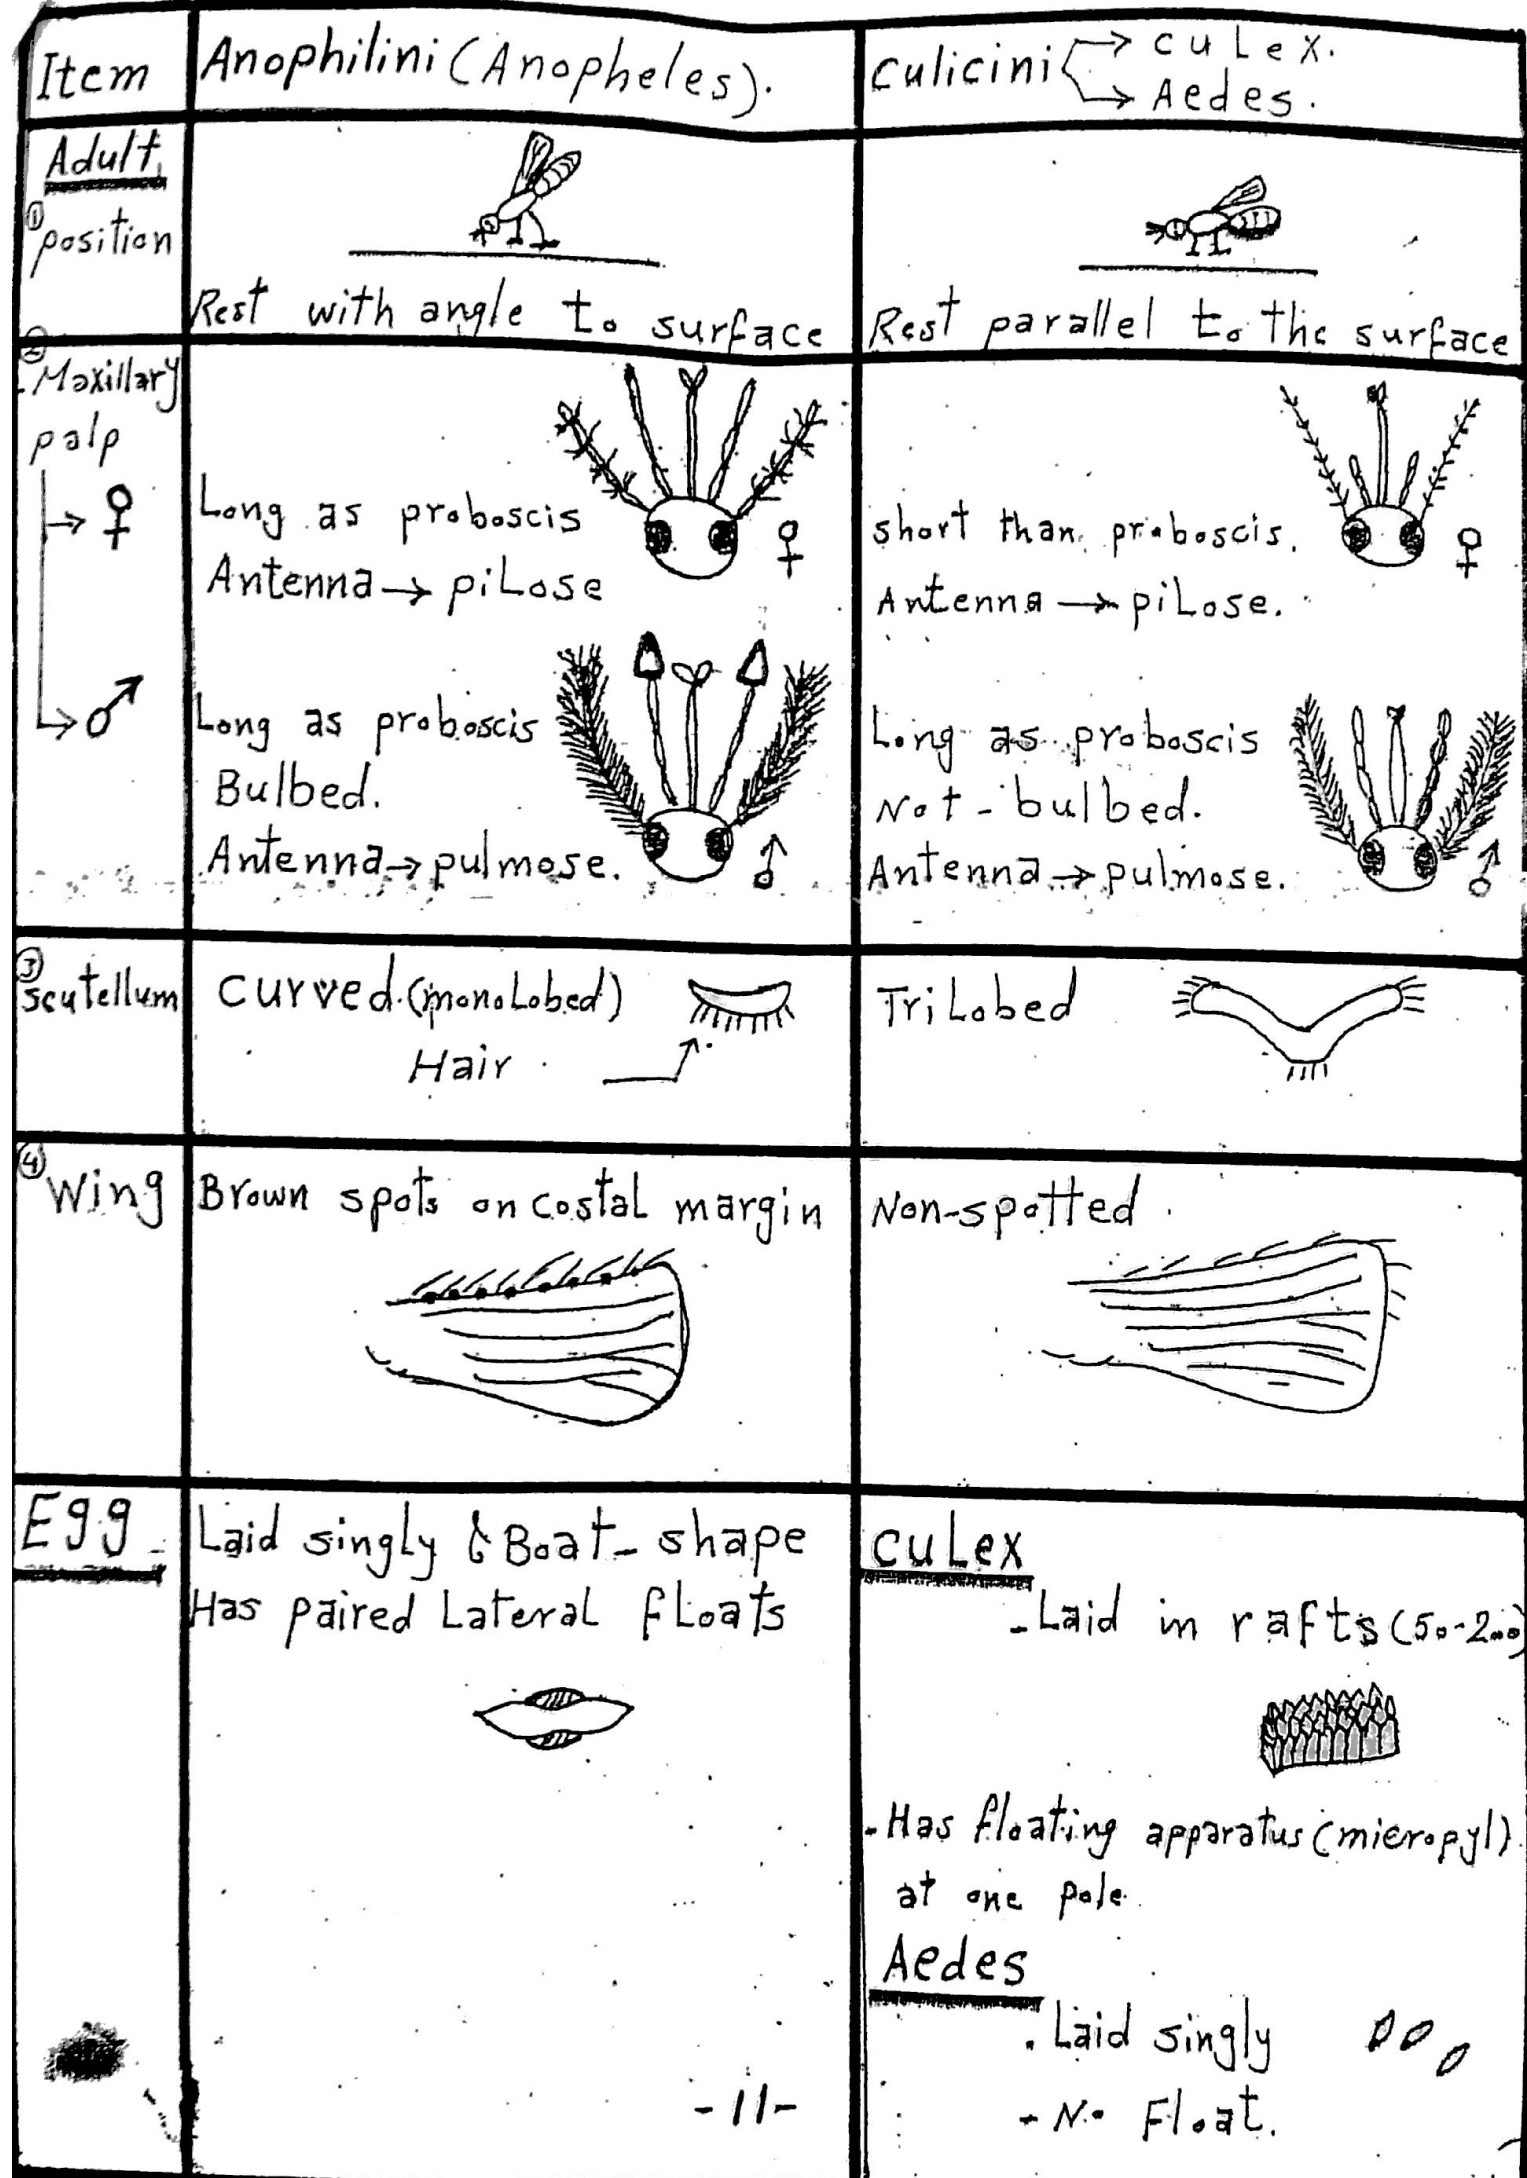 Item
Anophilini (Anopheles).
culicini → culex.
→ Aedes.
Adult
① position
Rest with angle to surface
Rest parallel to the surface
② Maxillary
palp
→ ♀
Long as proboscis
Antenna → pilose
♀
short than proboscis.
Antenna → pilose.
♀
→ ♂
Long as proboscis
Bulbed.
Antenna → pulmose.
♂
Long as proboscis
Not - bulbed.
Antenna → pulmose.
♂
③
scutellum
curved (monolobed)
Hair
Trilobed
④ Wing
Brown spots on costal margin
Non-spotted
Egg
Laid singly & Boat - shape
Has paired Lateral floats
culex
- Laid in rafts (50-200)
- Has floating apparatus (micropyl)
at one pole
Aedes
. Laid singly
- No Float.
-11-